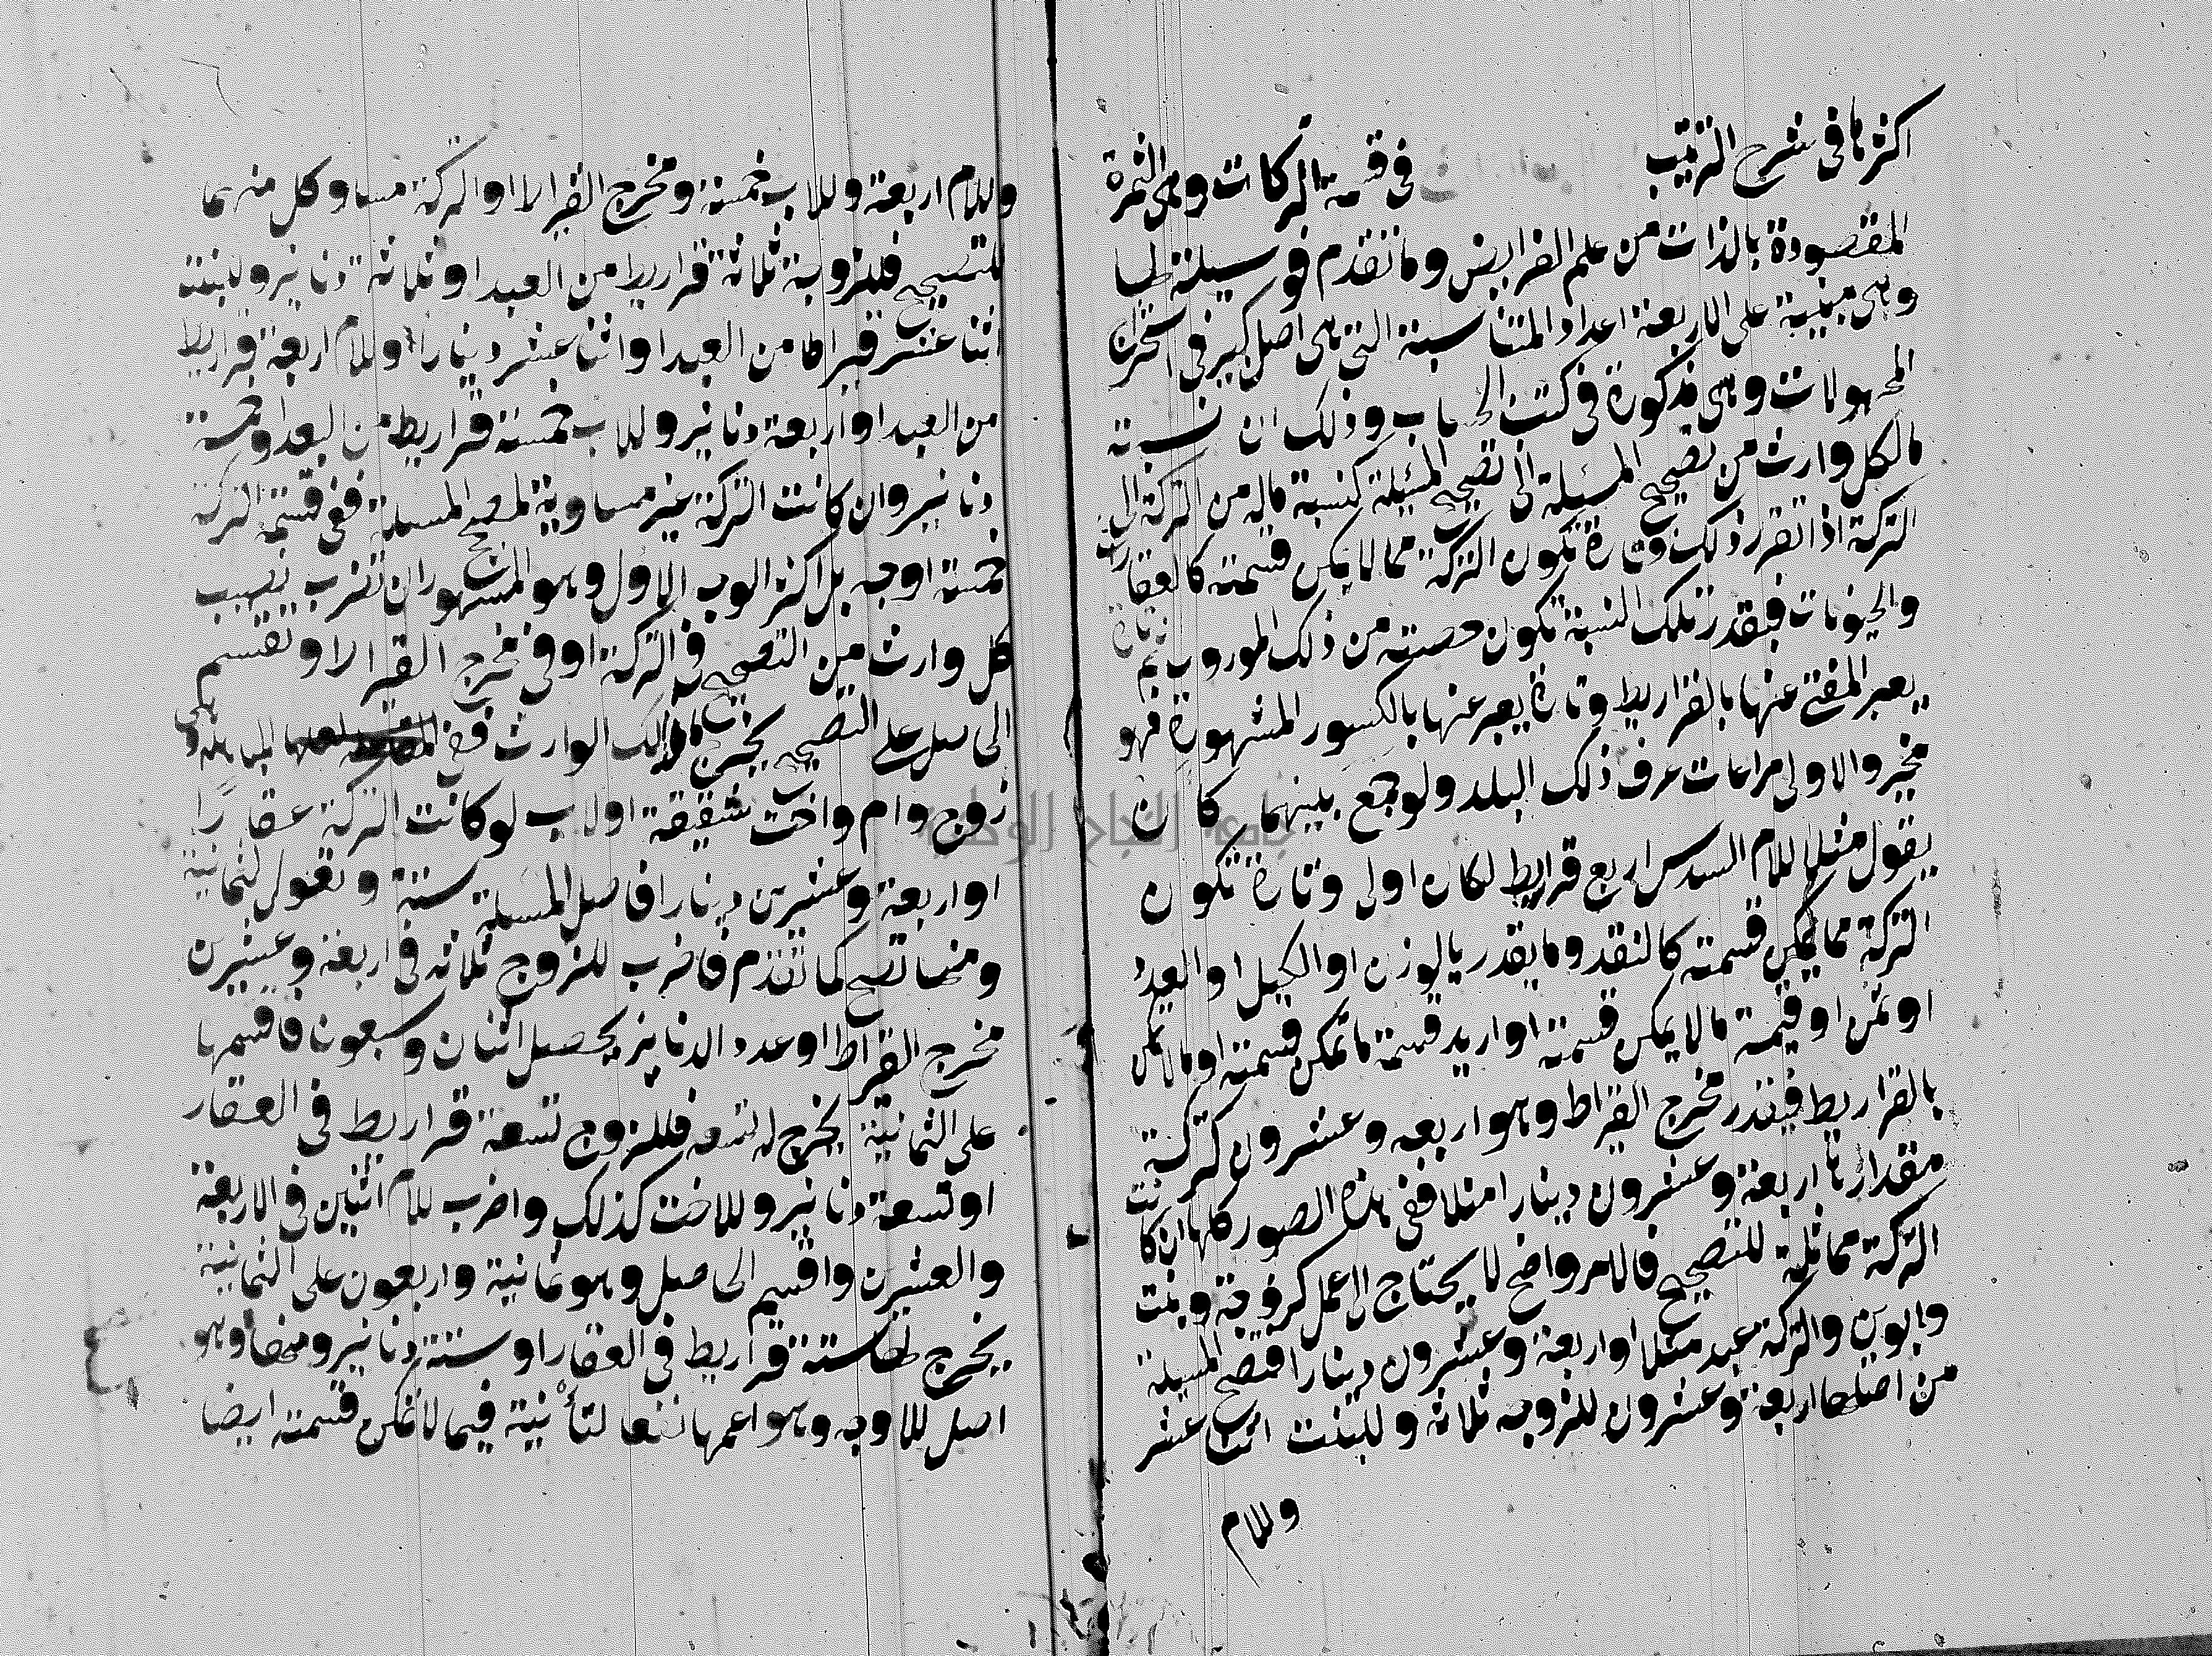 اكثرها في شرح الترتيب في قسمة التركات وهي الثمرة
المقصودة بالذات من علم الفرايض وما تقدم فوسيلة لها
وهي مبنية على الاربعة اعداد المتناسبة التي هي اصل كبير في استخراج
المجهولات وهي مذكورة في كتب الحساب وذلك ان نسبة
ما لكل وارث من تصحيح المسئلة الى تصحيح المسئلة كنسبة ماله من التركة الى
التركة اذا تقرر ذلك فتارة تكون التركة مما لا يمكن قسمته كالعقارات
والحيوانات فبقدر تلك النسبة تكون حصته من ذلك الموروث ثم تارة
يعبر المفتي عنها بالقراريط وتارة يعبر عنها بالكسور المشهورة فهو
مخير والاولى مراعات عرف ذلك البلد ولو جمع بينهما كان
يقول مثلا للام السدس اربع قراريط لكان اولى وتارة تكون
التركة مما يمكن قسمته كالنقد وما يقدر بالوزن او الكيل او العد
او ثمن او قيمة ما لا يمكن قسمته او اريد قسمة ما تمكن قسمته او مالا يمكن
بالقراريط فيقدر مخرج القيراط وهو اربعه وعشرون كتركة
مقدارها اربعة وعشرون دينارا مثلا ففي هذه الصور كلها ان كانت
التركة مماثلة للتصحيح فالامر واضح لا يحتاج الى عمل كزوجة وبنت
وابوين والتركة عبد مثلا او اربعة وعشرون دينارا فتصح المسيلة
من اصلها اربعة وعشرون للزوجه ثلاثة وللبنت اثنا عشر
وللام
وللام اربعة وللاب خمسة ومخرج القيراط او التركة مساو كل منهما
للتصحيح فللزوجة ثلاثة قراريط من العبد او ثلاثة دنانير وللبنت
اثنا عشر قيراطا من العبد او اثنا عشر دينارا وللام اربعة قراريط
من العبد او اربعة دنانير وللاب خمسة قراريط من العبد او خمسة
دنانير وان كانت التركة غير مساوية لمصحح المسيلة ففي قسمة التركة
خمسة اوجه بل اكثر الوجه الاول وهو المشهور ان تضرب نصيب
كل وارث من التصحيح في التركة او في مخرج القيراط وتقسم
الحاصل على التصحيح يخرج ما لذلك الوارث ففي المباهلة وهي
زوج وام واخت شقيقة او لاب لو كانت التركة عقارًا
او اربعة وعشرين دينارا فاصل المسيلة ستة وتعول لثمانية
ومنها تصح كما تقدم فاضرب للزوج ثلاثه في اربعة وعشرين
مخرج القيراط او عدد الدنانير يحصل اثنان وسبعون فاقسمها
على الثمانية يخرج له تسعه فللزوج تسعة قراريط في العقار
او تسعة دنانير وللاخت كذلك واضرب للام اثنين في الاربعة
والعشرين واقسم الحاصل وهو ثمانية واربعون على الثمانية
يخرج لها ستة قراريط في العقار او ستة دنانير ومنها وهو
اصل للاوجه وهو اعمها نفعا لتأنية فيما لا تمكن قسمته ايضا